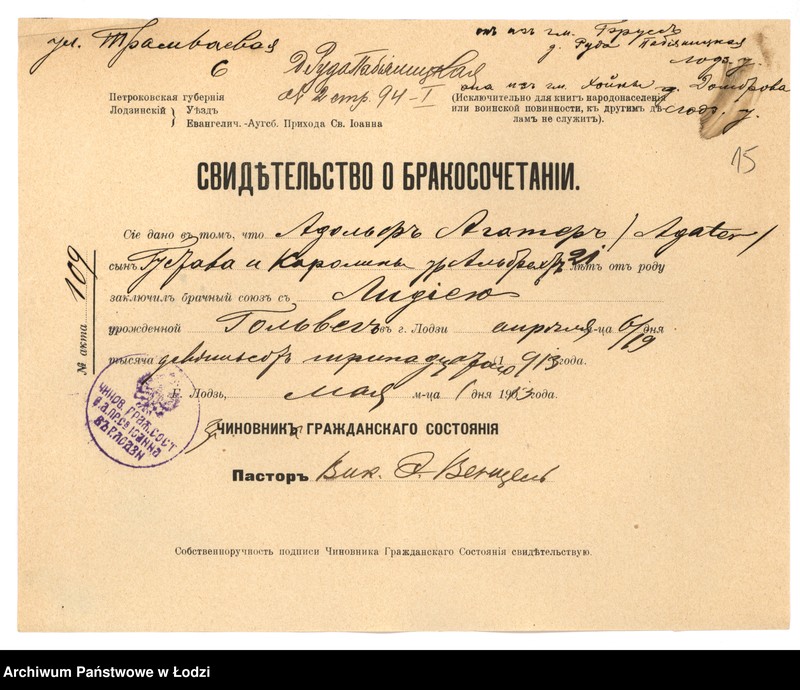 ул. Трамваевая
6
д. Руда Пабiяницкая
2 стр. 94-I
онъ изъ гм.
д. Руда Пабiяницкая
лодз. у.
она изъ гм. Хойны д. Домброва
лодз. у.
Петроковская губернія
Лодзинскій } Уѣздъ
Евангелич.-Аугсб. Прихода Св. Іоанна
(Исключительно для книг народонаселенія
или воинской повинности, къ другим дѣ-
лам не служит).
15
СВИДѢТЕЛЬСТВО О БРАКОСОЧЕТАНІИ.
№ акта 109
Сіе дано въ том, что Адольфъ Агатеръ / Agater /
сынъ Густава и Каролины ур. Альбрехтъ 21 лѣтъ от роду
заключилъ брачный союз съ Лидіею
урожденной Гольвегъ въ г. Лодзи апрѣля м-ца 6/19 дня
тысяча девятьсотъ тринадцатаго (1913 года.
Г. Лодзь, мая м-ца 1 дня 1913 года.
ЧИНОВНИКЪ ГРАЖДАНСКАГО СОСТОЯНІЯ
Пасторъ Вик. Венцель
ЧИНОВ. ГРАЖ. СОСТ
ІОАННА
ВЪ Г. ЛОДЗИ
Собственноручность подписи Чиновника Гражданскаго Состоянія свидѣтельствую.
Archiwum Państwowe w Łodzi